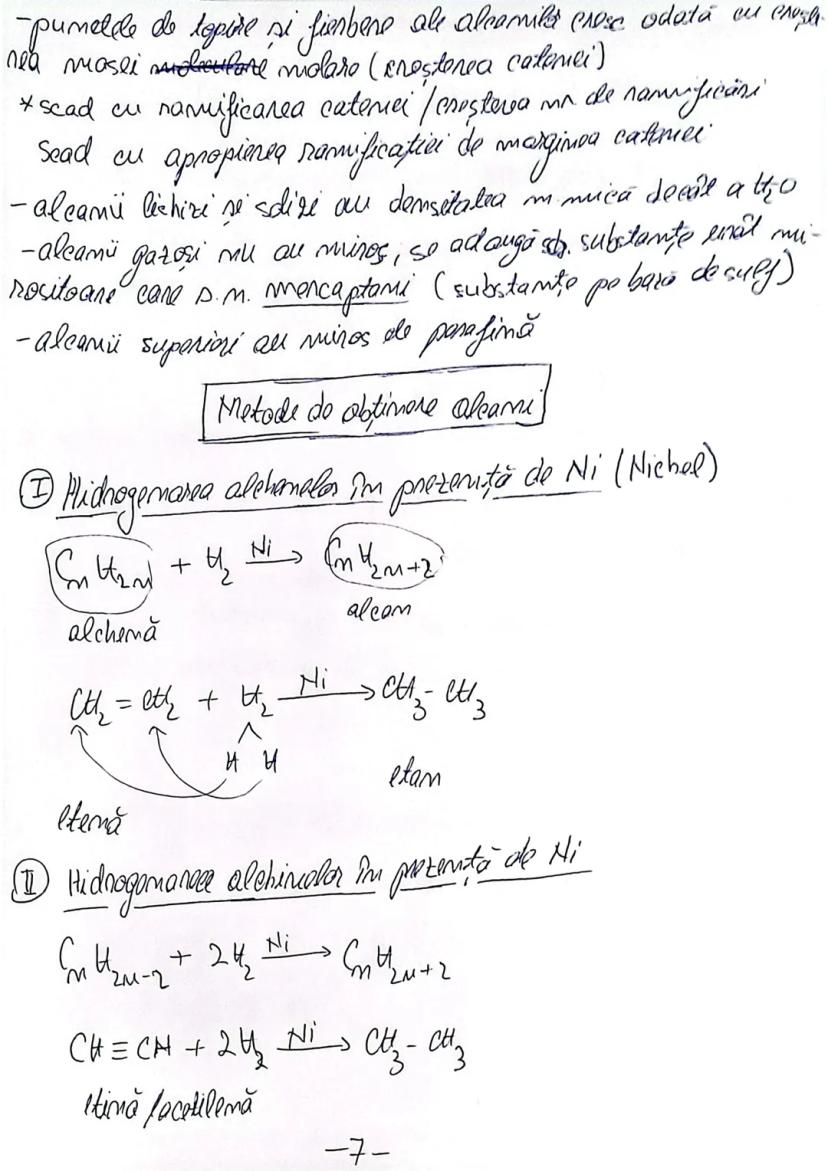 -punctele de topire și fierbere ale alcanilor cresc odată cu crește-
rea masei moleculare molare (creșterea catenei)
*scad cu ramificarea catenei/creșterea nr de ramificări
Scad cu apropierea ramificației de marginea catenei
-alcanii lichizi și solizi au densitatea m mică decât a H₂O
-alcanii gazoși nu au miros, se adaugă sb. substanțe urât mi-
rositoare care s.n. mercaptani (substanțe pe bază de sulf)
-alcanii superiori au miros de parafină
Metode de obținere alcani
I Hidrogenarea alchenelor în prezență de Ni (Nichel)
CₙH₂ₙ + H₂ Ni→ CₙH₂ₙ₊₂
alchenă alcan
CH₂=CH₂ + H₂ Ni→ CH₃-CH₃
H H
etan
etenă
II Hidrogenarea alchinelor în prezență de Ni
CₙH₂ₙ₋₂ + 2H₂ Ni→ CₙH₂ₙ₊₂
CH≡CH + 2H₂ Ni→ CH₃-CH₃
etină/acetilenă
-7-